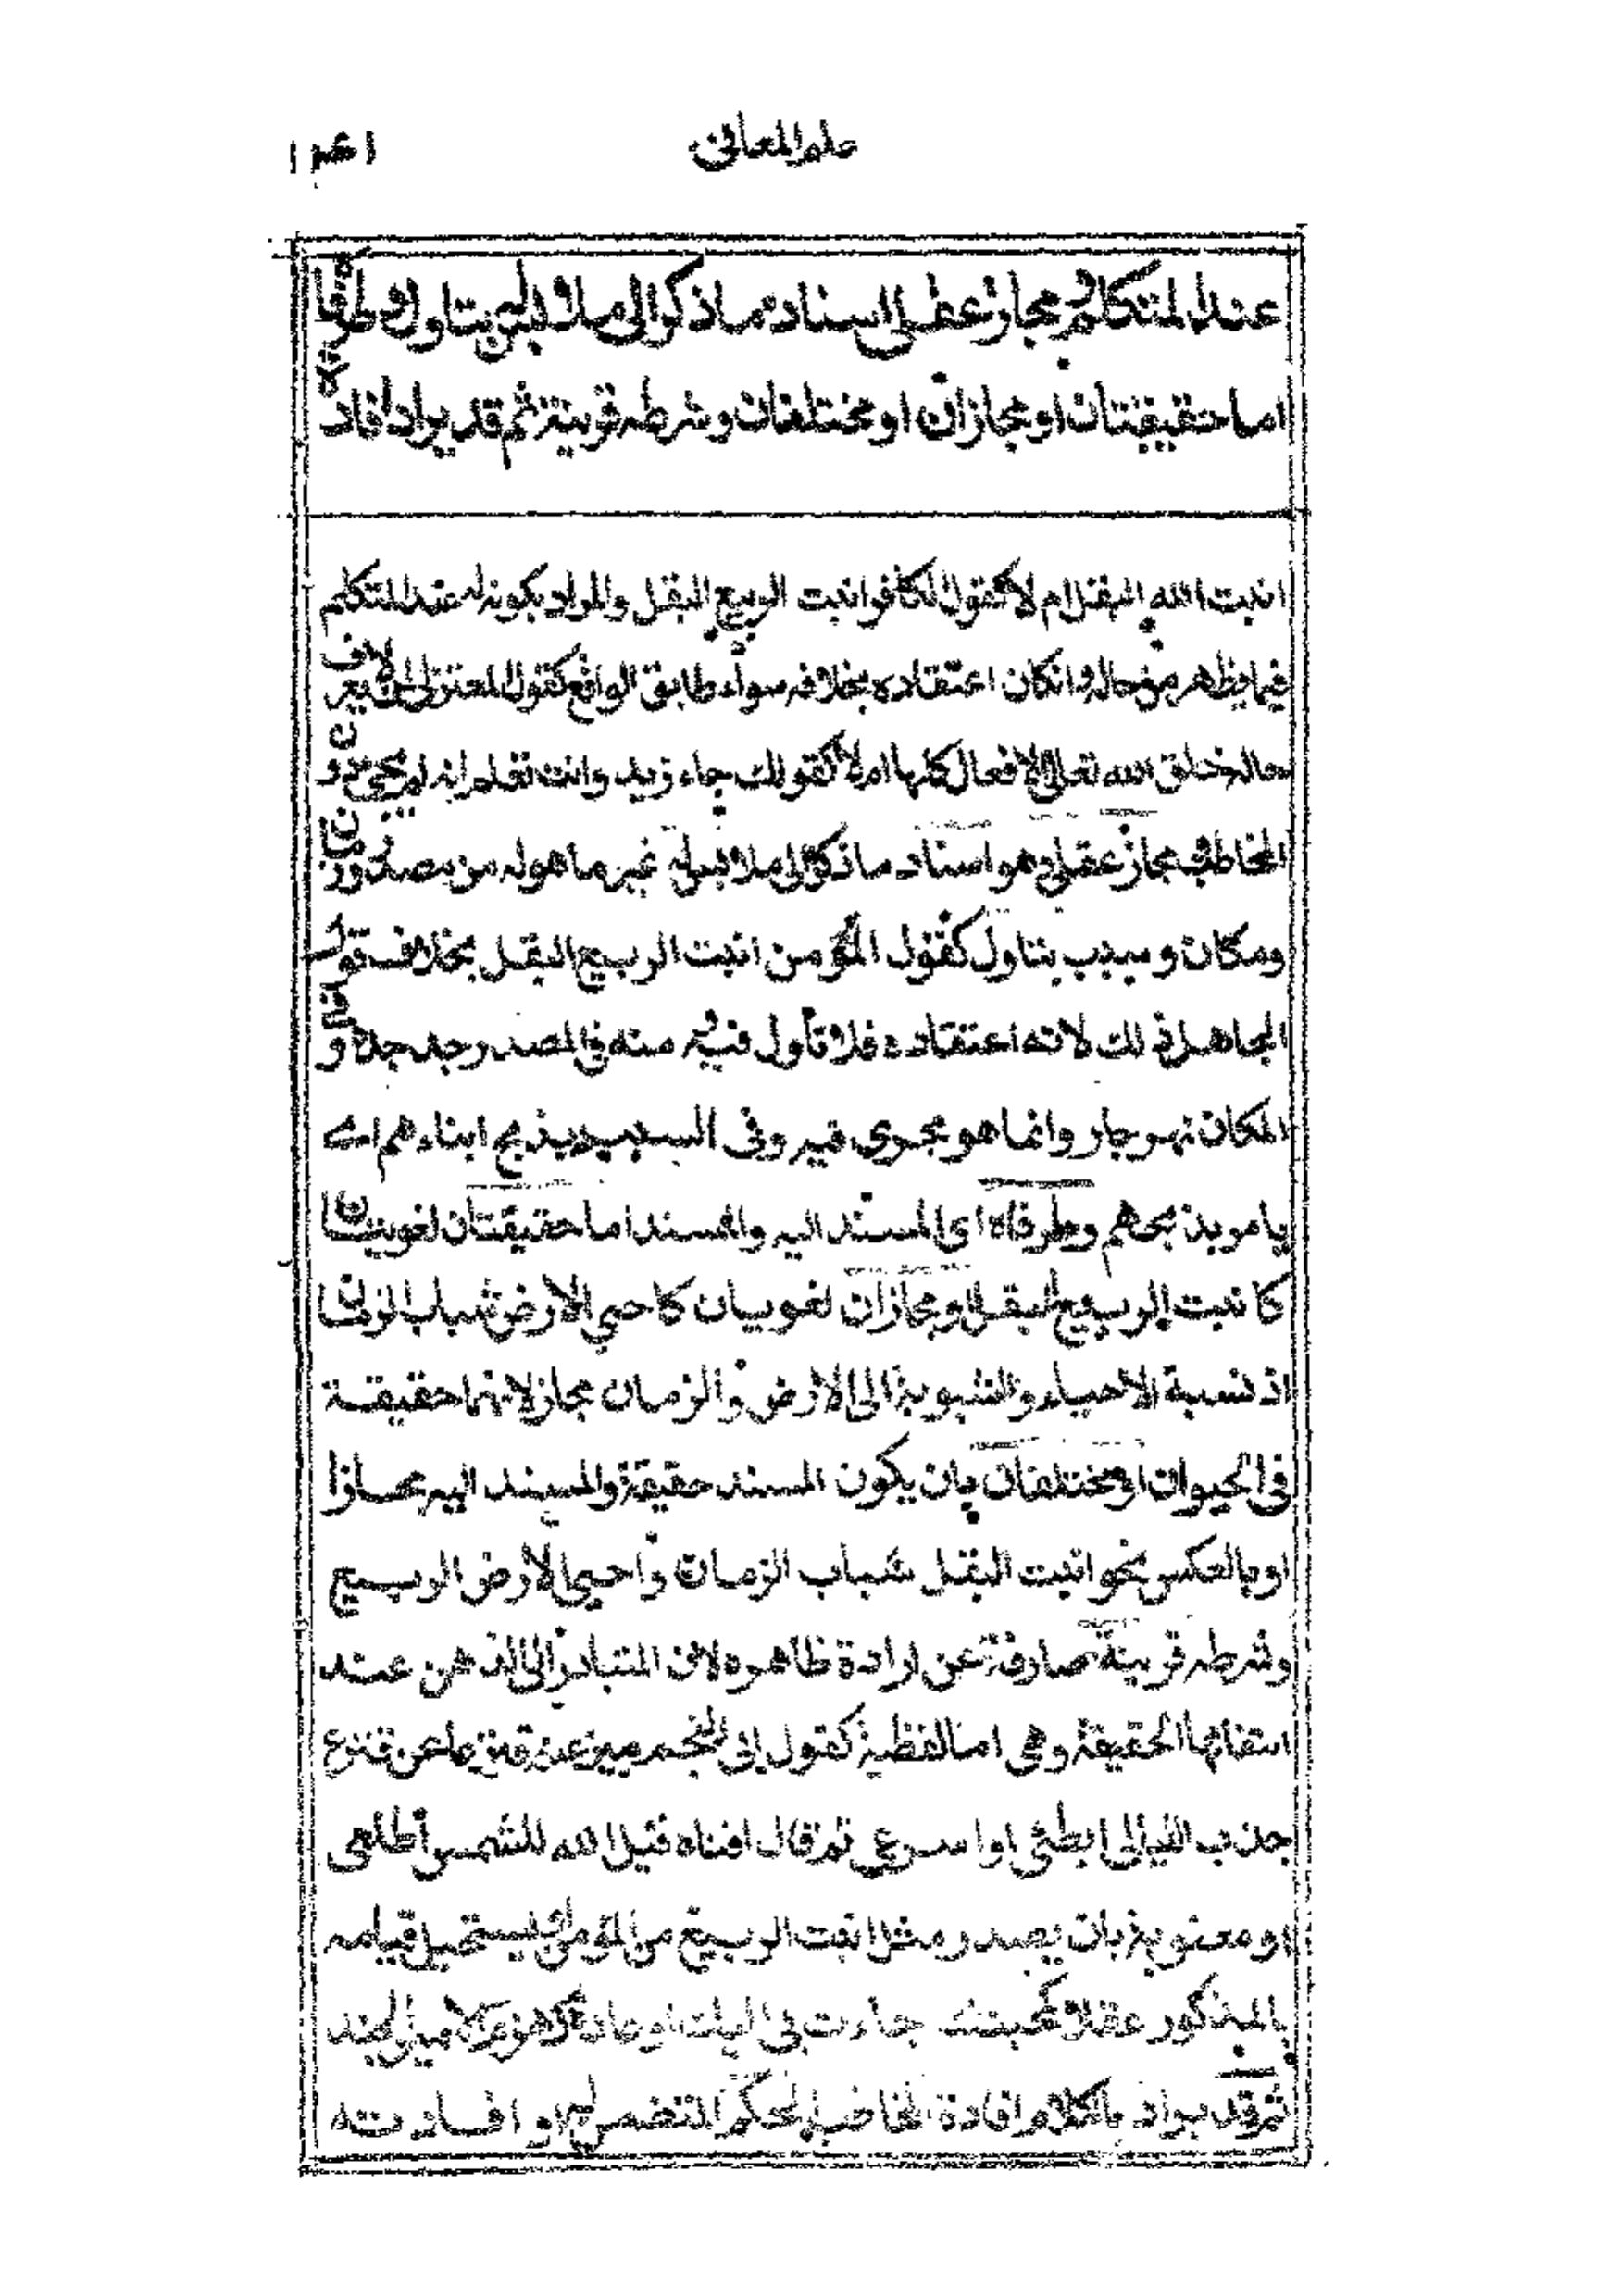 علم المعانى
عند المتكلم ومجاز عقلى اسناد ما ذكر الى ملابس بتاول وطرفاه
اما حقيقتان او مجازان او مختلفان وشرطه قرينة ثم قد يراد افادة
انبت الله البقل ام لا كقول الكافر انبت الربيع البقل والمراد بكونه له عند المتكلم
فيما يظهر من حاله وانكان اعتقاده بخلافه سواء طابق الواقع كقول المعتزلى لمن لا يعرف
حاله خلق الله تعالى الافعال كلها ام لا كقولك جاء زيد وانت تعلم انه لم يجئ دون
المخاطب ومجاز عقلى وهو اسناد ما ذكر الى ملابس له غير ما هو له من مصدر وزمان
ومكان وسبب بتاول كقول المؤمن انبت الربيع البقل بخلاف قول
الجاهل ذلك لانه اعتقاده فلا تأول فيه ومنه فى المصدر جد جده وفى
المكان نهر جار وانما هو مجرى فيه وفى السبب يذبح ابناءهم اى
يامر بذبحهم وطرفاه اى المسند اليه والمسند اما حقيقتان لغويتان
كانبت الربيع البقل او مجازان لغويان كاحيى الارض شباب الزمان
اذ نسبة الاحياء والشبوبة الى الارض والزمان مجاز لانهما حقيقة
فى الحيوان او مختلفان بان يكون المسند حقيقة والمسند اليه مجازا
او بالعكس نحو انبت البقل شباب الزمان واحيى الارض الربيع
وشرطه قرينة صارفة عن ارادة ظاهره لان المتبادر الى الذهن عند
انتفائها الحقيقة وهى اما لفظية كقول ابى النجم ميز عنه قنزعا عن قنزع
جذب الليالى ابطئى او اسرعى ثم قال افناه قيل الله للشمس اطلعى
او معنوية بان يصدر مثل انبت الربيع من المؤمن او يستحيل قيامه
بالمذكور عقلا كمحبتك جاءت بى اليك او عادة كهزم الامير الجند
ثم قد يراد بالكلام افادة المخاطب الحكم المتضمن له او افادته